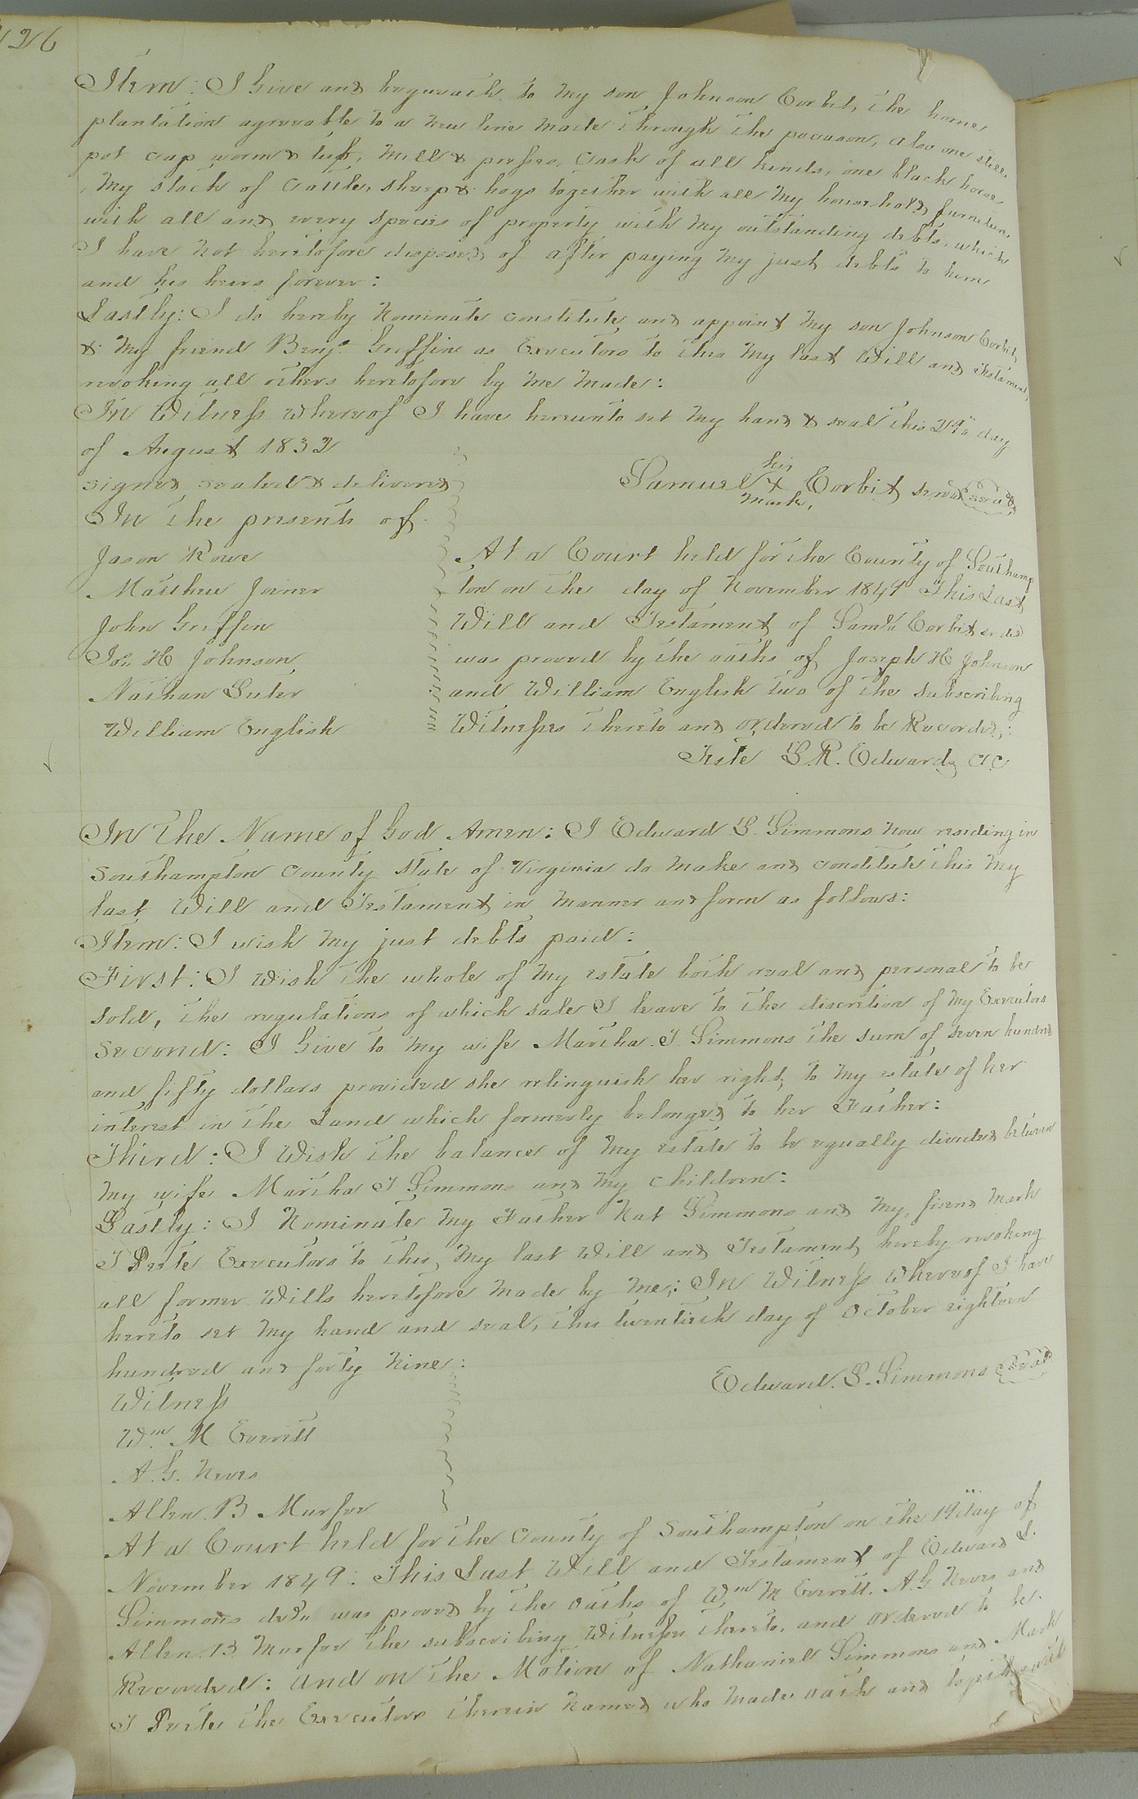 426
Item: I Give and bequeath to my son Johnson Corbit, the home
plantation agreeable to a new line made through the pocason, also one still
pot cap worm & tub, Mill & presses, Cask of all kinds, one black horse
My stock of Cattle, sheep & hogs together with all My household furniture,
with all and every species of property with My outstanding debts, which
I have Not heretofore disposed of after paying My just debts to him
and his heirs forever:
Lastly: I do hereby Nominate constitute and appoint My son Johnson Corbit,
& My friend Benj.ⁿ Griffin as Executors to this My last Will and testament,
revoking all others heretofore by Me Made:
In Witness whereof I have hereunto set My hand & seal this day
of August 1832
signed, sealed & delivered
In the presents of
his
Samuel X Corbit seal
Mark,
Jason Rowe
Matthew Joiner
John Griffin
Jos. H Johnson,
Nathan Suter
William English
At a Court held for the County of Southamp
ton on the day of November 1849 This Last
Will and Testament of Saml. Corbit decd
was prooved by the oaths of Joseph H Johnson
and William English two of the subscribing
Witnesses thereto and ordered to be Recorded;
Teste L. R. Edwards CC
In The Name of God Amen: I Edward S. Simmons Now residing in
Southampton County State of Virginia do Make and constitute this My
last Will and Testament in Manner and form as follows:
Item: I wish My just debts paid:
First: I Wish the whole of My estate both real and personal to be
sold, the regulations of which sale I leave to the discretion of My Executors
Second: I Give to My wife Martha T Simmons the sum of seven hundred
and fifty dollars provided she relinquish her right, to My estate of her
interest in the Land which formerly belonged to her Father:
Third: I Wish the balance of My estate to be equally divided between
My wife Martha T Simmons and My Children:
Lastly: I Nominate My Father Nat Simmons and My friend Mark
T Peete Executors to this, My last Will and Testament, hereby revoking
all former Wills heretofore Made by Me: In Witness Whereof I have
hereto set My hand and seal, this twentieth day of October eighteen
hundred and forty Nine:
Edward. S. Simmons seal
Witness
Wm. M Everitt
A. G. Neves
Allen. B Murfee
At a Court held for the County of Southampton on the 19th day of
November 1849: This Last Will and Testament of Edward S.
Simmons decd. was proved by the oaths of Wm M Everitt. A. G Neves and
Allen. B Murfee the subscribing Witnesses thereto, and ordered to be.
Recorded: And on the Motion of Nathaniel Simmons and Mark
T Peete the Executors therein Named who Made oath and together with